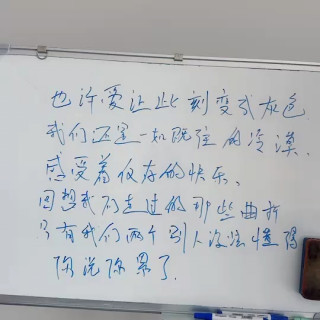 也许爱让此刻变成灰色
我们还是一如既往的冷漠.
感受着仅存的快乐、
回想我们走过的那些曲折
只有我们两个别人没法懂得
你说你累了.